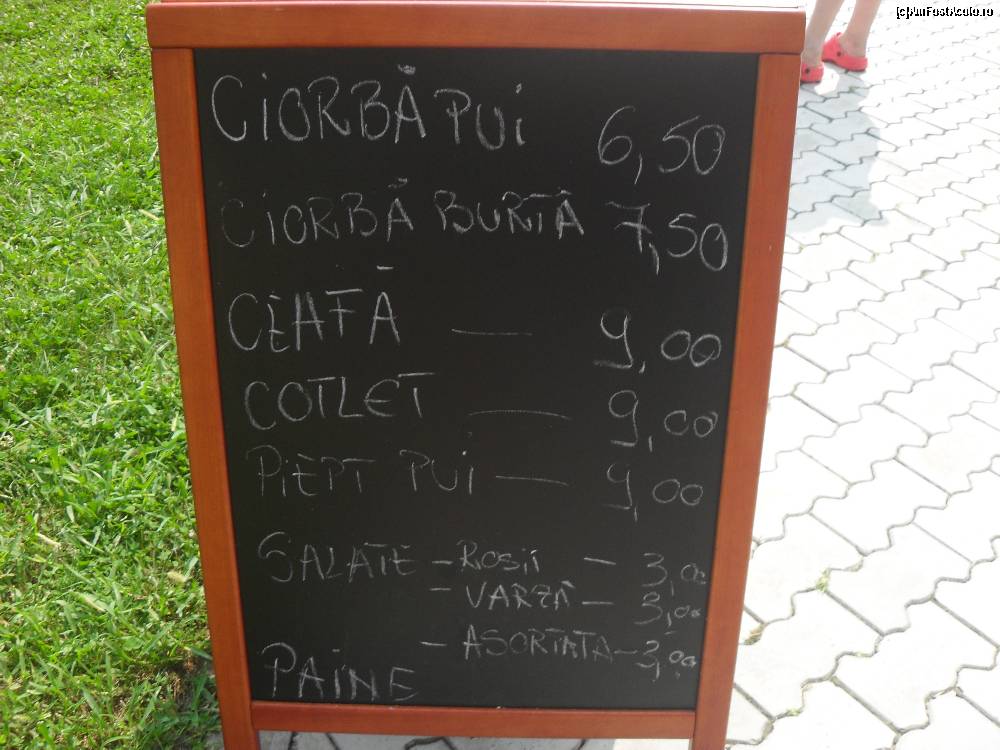 [c]AmFostAcolo.ro
CIORBĂ PUI 6,50
CIORBĂ BURTĂ 7,50
CEAFĂ — 9,00
COTLET — 9,00
PIEPT PUI — 9,00
SALATE - ROSII - 3,00
- VARZĂ - 3,00
- ASORTATA - 3,00
PAINE